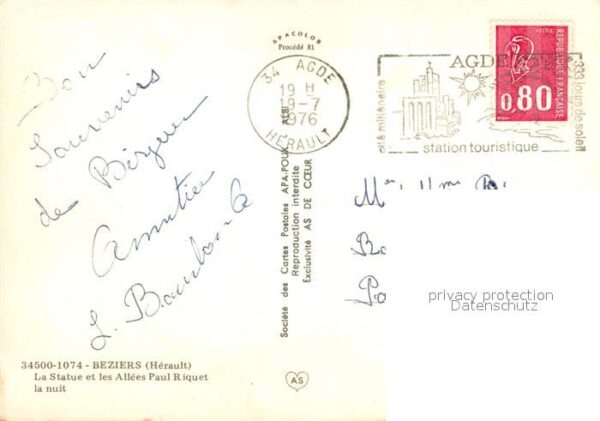 APACOLOR
Procédé 81
Bon
Souvenirs
de Bézier
Amitiés
34 AGDE
19 H
19-7
1976
HÉRAULT
AGDE
cité millénaire
333 jours de soleil
station touristique
POSTES
REPUBLIQUE FRANÇAISE
0,80
Société des Cartes Postales APA-POUX ALBI
Reproduction interdite
Exclusivité AS DE CŒUR
privacy protection
Datenschutz
34500-1074 - BEZIERS (Hérault)
La Statue et les Allées Paul Riquet
la nuit
AS